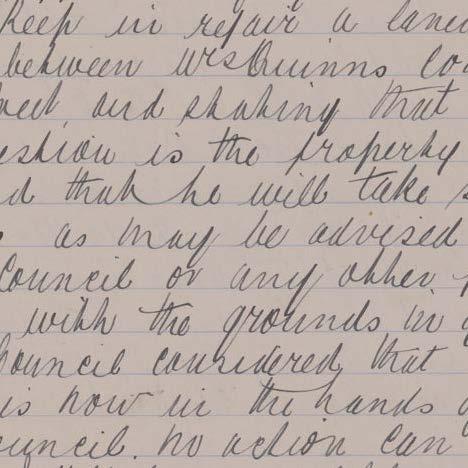 keep in repair a lane
between Mrs Quinns
and stating that
is the property
that he will take
as may be advised
Council or any other
with the grounds in
Council considered that
is now in the hands
Council. no action can